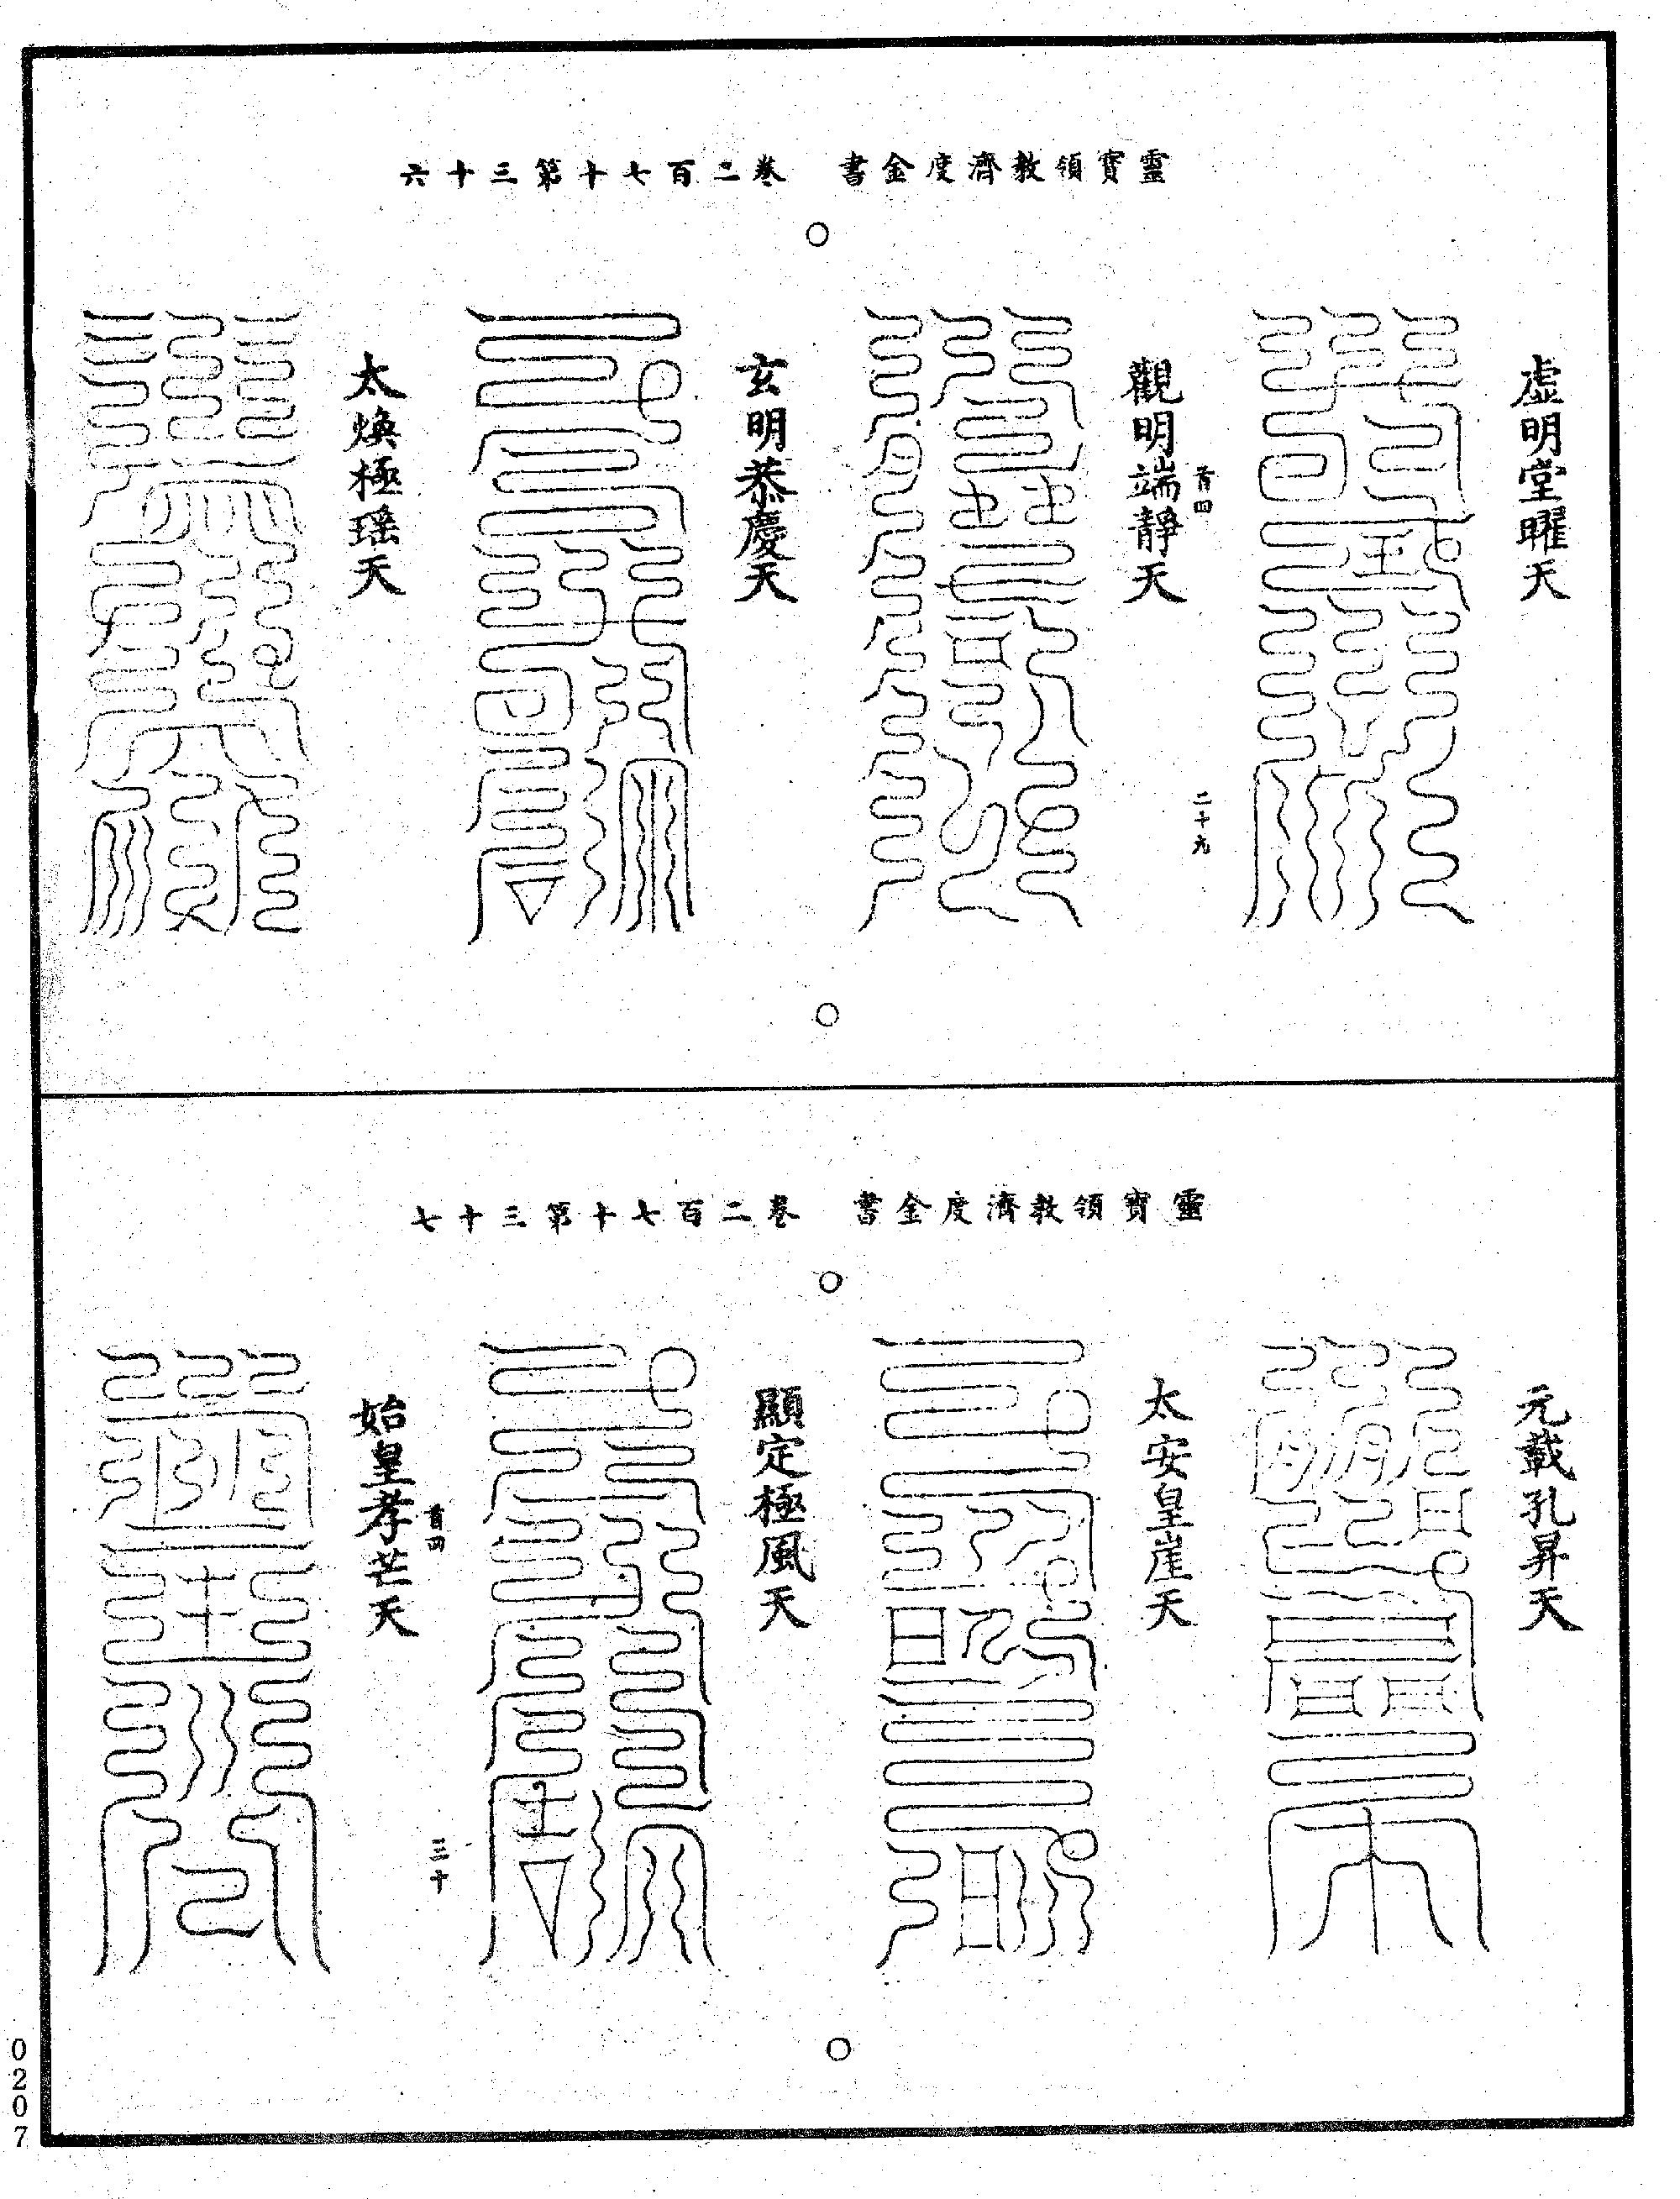 靈寶領教濟度金書　卷二百七十第三十六
虛明堂曜天
首四
二十九
觀明端靜天
玄明恭慶天
太煥極瑶天
靈寶領教濟度金書　卷二百七十第三十七
元載孔昇天
太安皇崖天
顯定極風天
首四
三十
始皇孝芒天
0207